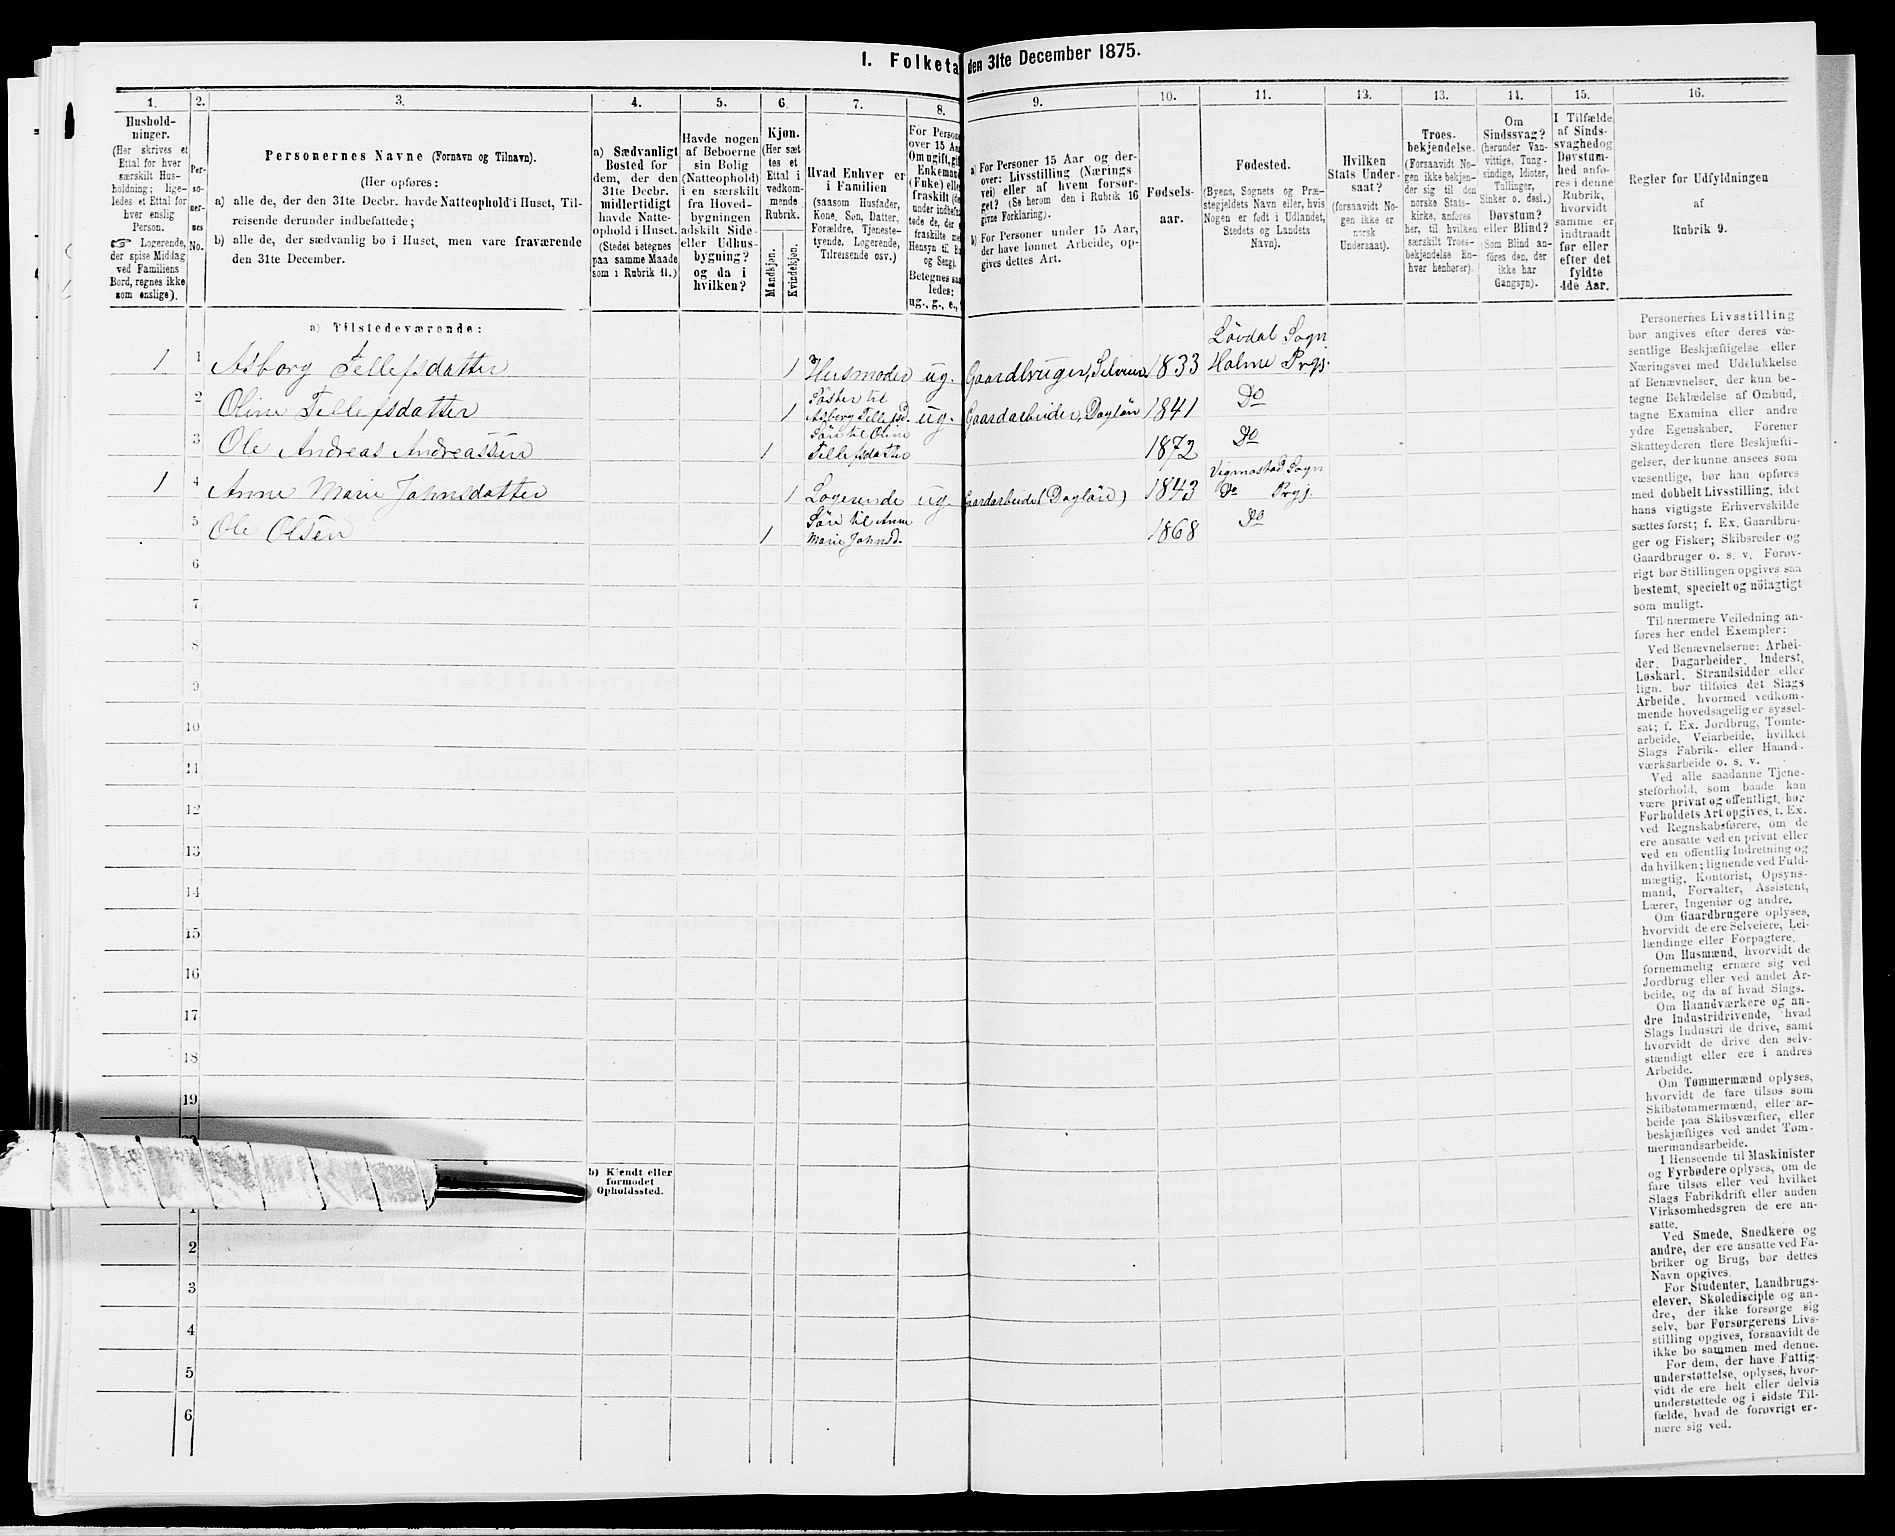 I. Folketa den 31te December 1875.
1. 2. 3. 4. 5. 6. 7. 8. 9. 10. 11. 13. 13. 14. 15. 16.
Hushold-
ninger.
(Her skrives et
Ettal for hver
særskilt Hus-
holdning; lige-
ledes et Ettal for
hver enslig
Person.
☞ Logerende,
der spise Middag
ved Familiens
Bord, regnes ikke
som enslige).
Per-
so-
ner-
nes
No.
Personernes Navne (Fornavn og Tilnavn).
(Her opføres:
a) alle de, der den 31te Decbr. havde Natteophold i Huset, Til-
reisende derunder indbefattede;
b) alle de, der sædvanlig bo i Huset, men vare fraværende
den 31te December.
a) Sædvanligt
Bosted for
dem, der den
31te Decbr.
midlertidigt
havde Natte-
ophold i Huset.
(Stedet betegnes
paa samme Maade
som i Rubrik 11.)
Havde nogen
af Beboerne
sin Bolig
(Natteophold)
i en særskilt
fra Hoved-
bygningen
adskilt Side-
eller Udhus-
bygning?
og da i
hvilken?
Kjøn.
(Her sæt
tes et
Ettal i
vedkom-
mende
Rubrik.
Mandkjøn.
Kvindekjøn.
Hvad Enhver er
i Familien
(saasom Husfader,
Kone, Søn, Datter,
Forældre, Tjeneste-
tyende, Logerende,
Tilreisende osv.)
For Persone
over 15 Aar
Om ugift, gif
Enkemand
(Enke) elle
fraskilt (de
under indbefat
tede de, der e
fraskilte me
Hensyn til
og Seng).
Betegnes saa
ledes:
ug., g., e.,
a) For Personer 15 Aar og der-
over: Livsstilling (Nærings
vei) eller af hvem forsør-
get? (Se herom den i Rubrik 16
givne Forklaring).
b) For Personer under 15 Aar,
der have lønnet Arbeide, op-
gives dettes Art.
Fødsels-
aar.
Fødested.
(Byens, Sognets og Præ-
stegjeldets Navn eller, hvis
Nogen er født i Udlandet,
Stedets og Landets
Navn).
Hvilken
Stats Under-
saat?
(forsaavidt No-
gen ikke er
norsk
Undersaat).
Troes-
bekjendelse.
(Forsaavidt No-
gen ikke bekjen-
der sig til den
norske Stats-
kirke, anføres
her, til hvilken
særskilt Troes-
bekjendelse En-
hver henhører).
Om
Sindssvag?
(herunder Van-
vittige, Tung-
sindige, Idioter,
Tullinger,
Sinker o. desl.)
Døvstum?
eller Blind?
(Som Blind an-
føres den, der
ikke har
Gangsyn).
I Tilfælde
af Sinds-
svaghed og
Døvstum-
hed anfø-
res i denne
Rubrik,
hvorvidt
samme er
indtraadt
før eller
efter det
fyldte
4de Aar.
Regler for Udfyldningen
af
Rubrik 9.
a) Tilstedeværende:
1 1 Asborg Tellefsdatter 1 Husmoder ug. Gaardbruger, Selveier 1833 Lövdal Sogn
Holme Prgj.
2 Oline Tellefsdatter 1 Söster til
Asborg Tellefsd. ug. Gaardarbeide, Daglön 1841 Do
3 Ole Andreas Andreassen 1 Sön til Oline
Tellefsdatter 1872 Do
1 4 Anne Marie Jahnsdatter 1 Logerende ug. Gaardarbeide (Daglön) 1843 Vigmostad Sogn
Do Prgj.
5 Ole Olsen 1 Sön til Anne
Marie Jahnsd. 1868 Do
6
7
8
9
10
11
12
13
14
15
16
17
18
19
b) Kjendt eller
formodet
Opholdssted.
1
2
3
4
5
6
Personernes Livsstilling
bør angives efter deres væ-
sentlige Beskjæftigelse eller
Næringsvei med Udelukkelse
af Benævnelser, der kun be-
tegne Beklædelse af Ombud,
tagne Examina eller andre
ydre Egenskaber. Forener
Skatteyderen flere Beskjæfti-
gelser, der kunne ansees som
væsentlige, bør han opføres
med dobbelt Livsstilling, idet
hans vigtigste Erhvervskilde
sættes først; f. Ex. Gaardbru-
ger og Fisker; Skibsreder og
Gaardbruger o. s. v. Forøv-
rigt bør Stillingen opgives saa
bestemt, specielt og nöiagtigt
som muligt.
Til nærmere Veiledning an-
føres her endel Exempler:
Ved Benævnelserne: Arbei-
der, Dagarbeider, Inderst,
Løskarl, Strandsidder eller
lign. bør tilføies det Slags
Arbeide, hvormed vedkom-
mende hovedsagelig er syssel-
sat; f. Ex. Jordbrug, Tomte-
arbeide, Veiarbeide, hvilket
Slags Fabrik- eller Haand-
værksarbeide o. s. v.
Ved alle saadanne Tjene-
steforhold, som baade kan
være privat og offentligt, bør
Forholdets Art opgives, t. Ex.
ved Regnskabsførere, om de
ere ansatte ved en privat eller
ved en offentlig Indretning og
da hvilken; lignende ved Fuld-
mægtig, Kontorist, Opsyns-
mand, Forvalter, Assistent,
Lærer, Ingeniør og andre.
Om Gaardbrugere oplyses,
hvorvidt de ere Selveiere, Lei-
lændinge eller Forpagtere.
Om Husmænd, hvorvidt de
fornemmelig ernære sig ved
Jordbrug eller ved andet Ar-
beide, og da af hvad Slags.
Om Haandværkere og an-
dre Industridrivende, hvad
Slags Industri de drive, samt
hvorvidt de drive den selv-
stændigt eller ere i andres
Arbeide.
Om Tømmermænd oplyses,
hvorvidt de fare tilsøs som
Skibstømmermænd, eller ar-
beide paa Skibsværfter, eller
beskjæftiges ved andet Tøm-
mermandsarbeide.
I Henseende til Maskinister
og Fyrbødere oplyses, om de
fare tilsøs eller ved hvilket
Slags Fabrikdrift eller anden
Virksomhedsgren de ere an-
satte.
Ved Smede, Snedkere og
andre, der ere ansatte ved Fa-
briker og Brug, bør dettes
Navn opgives.
For Studenter, Landbrugs-
elever, Skoledisciple og an-
dre, der ikke forsørge sig
selv, bør Forsørgerens Livs-
stilling opgives, forsaavidt de
ikke bo sammen med denne.
For dem, der have Fattig-
understøttelse, oplyses, hvor-
vidt de ere helt eller delvis
understøttede og i sidste Til-
fælde, hvad de forøvrigt er-
nære sig ved.